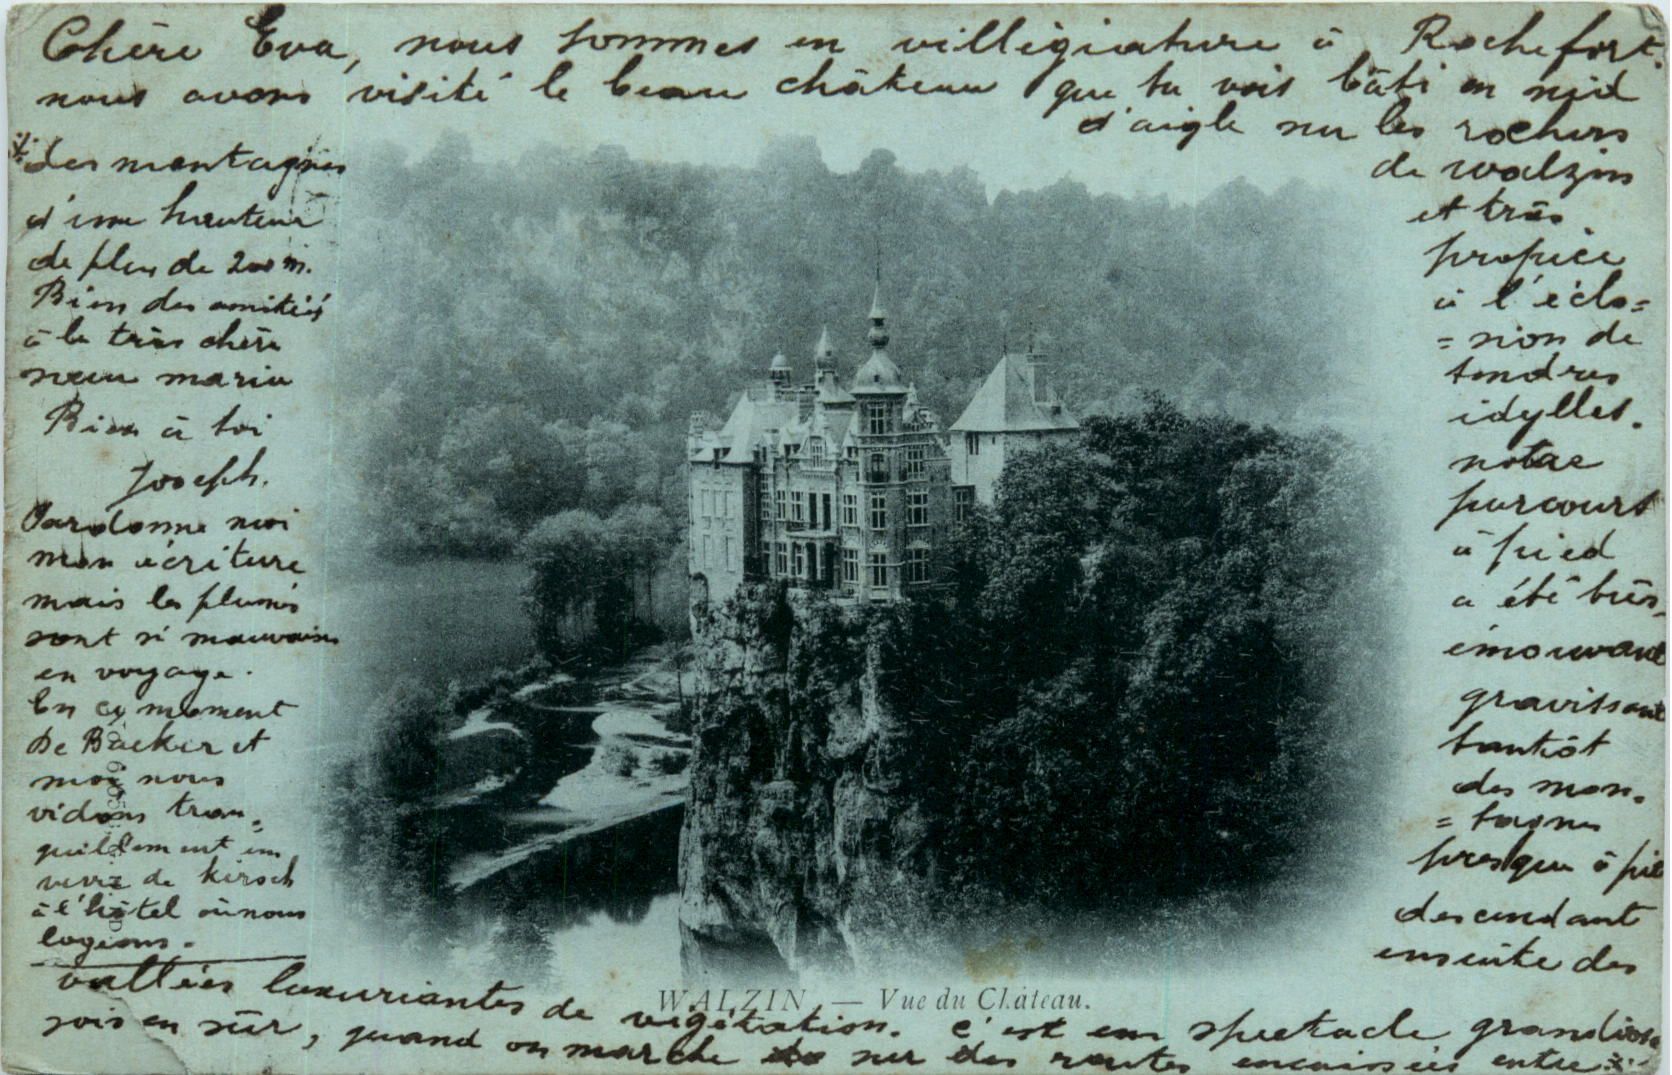 Chère Eva, nous sommes en villégiature à Rochefort.
nous avons visité le beau château que tu vois bâti en nid
d'aigle sur les rochers
de Walzin
et très
propice
à l'éclo=
=sion de
tendres
idylles.
notre
parcours
à pied
a été très
émouvant
gravissant
tantôt
des mon=
=tagnes
presque à pic
descendant
ensuite des
vallées luxuriantes de végétation. C'est un spectacle grandiose
sois en sûr, quand on marche sur des routes encaissées entre
des montagnes
d'une hauteur
de plus de 200 m.
Bien des amitiés
à la très chère
sœur Maria
Bien à toi
Joseph.
Pardonne moi
mon écriture
mais les plumes
sont si mauvaises
en voyage.
En ce moment
De Backer et
moi nous
vidons tran=
quillement un
verre de kirsch
à l'hôtel où nous
logeons.
WALZIN. — Vue du Château.